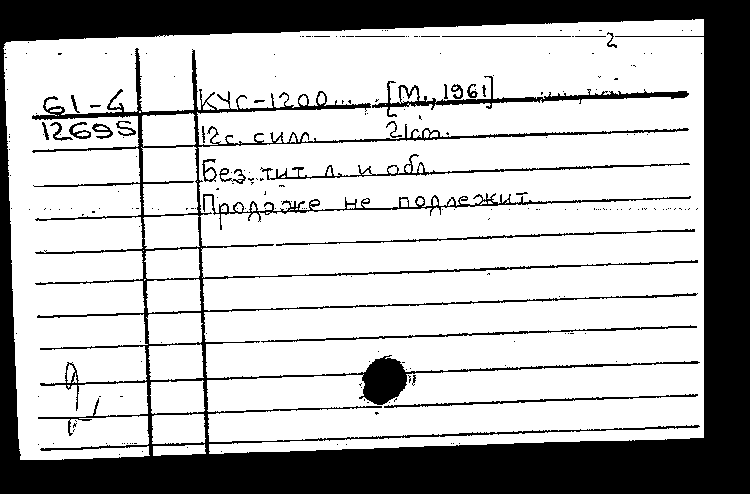 2
61-4
12695
КУС-1200... [М., 1961]
12с. с илл. 21см.
Без тит л. и обл.
Продаже не подлежит